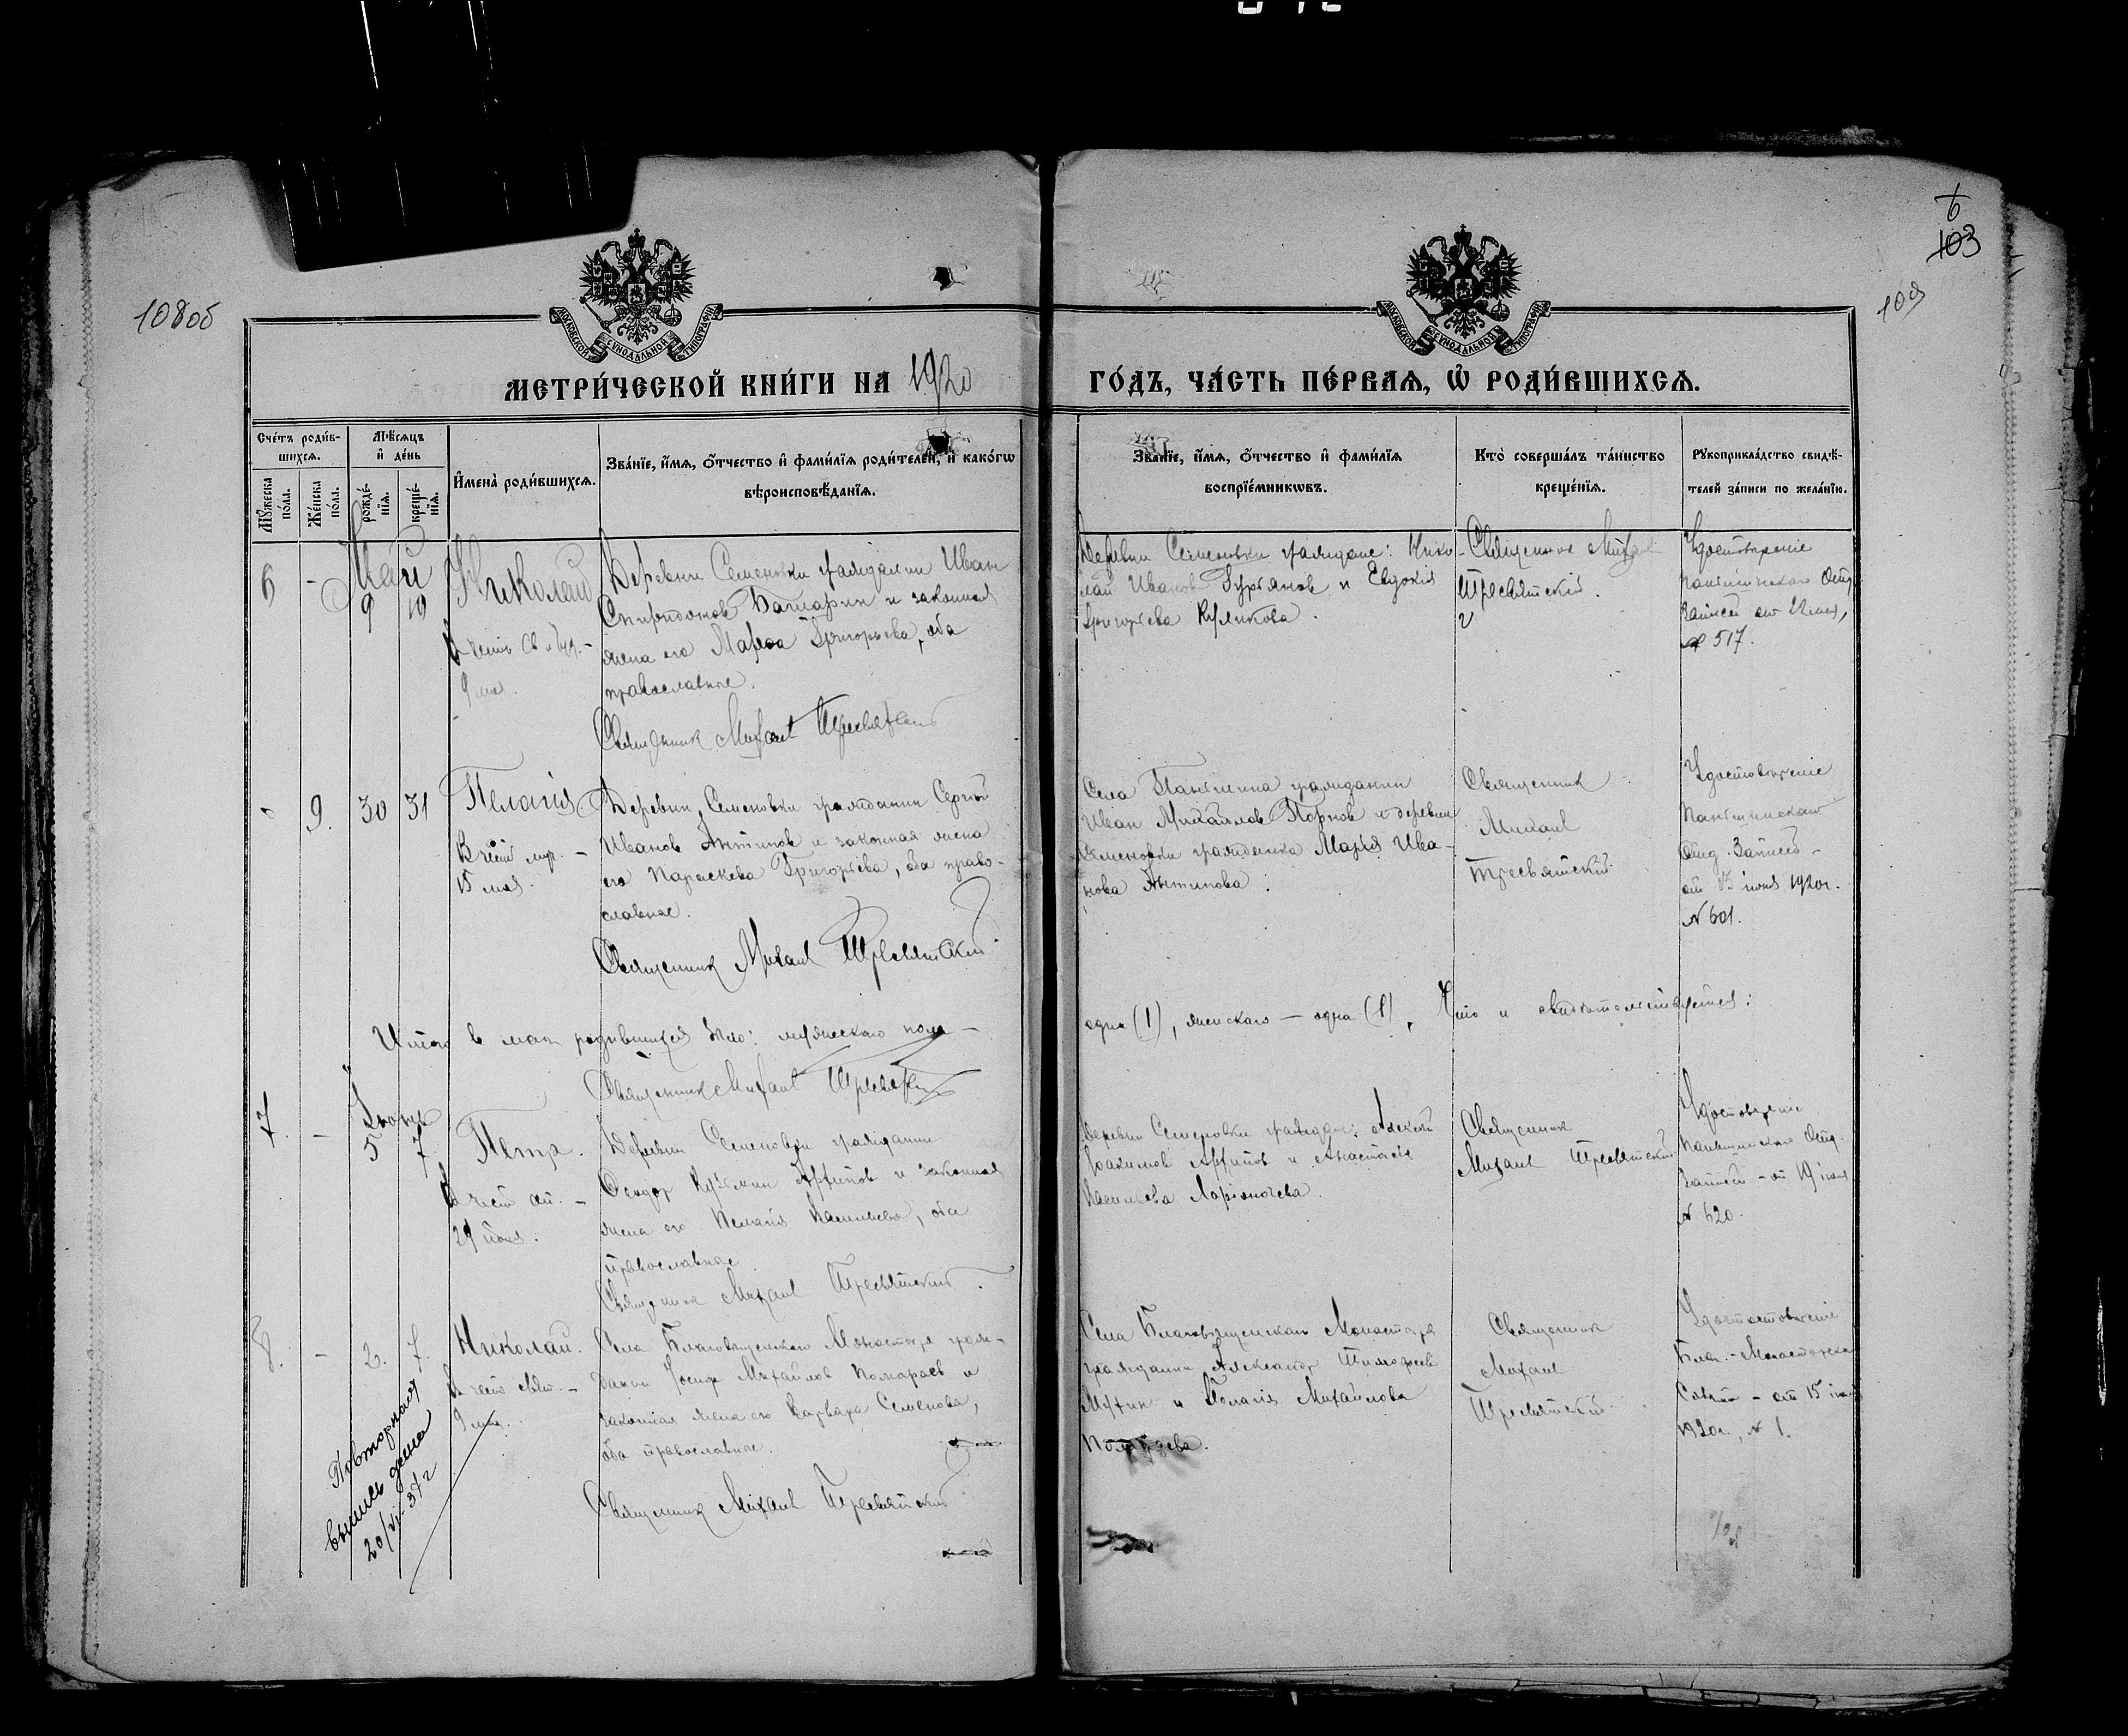 108об
6
103
109
МОСКОВСКОЙ СѴНОДАЛЬНОЙ ТИПОГРАФІИ
МОСКОВСКОЙ СѴНОДАЛЬНОЙ ТИПОГРАФІИ
МЕТРИ́ЧЕСКОЙ КНИ́ГИ НА 1920
ГО́ДЪ, ЧА́СТЬ ПЕ́РВАЯ, Ѽ РОДИ́ВШИХСЯ.
Сче́тъ роди́в-
шихся.
Мѣ́сяцъ
и҆ де́нь
Мꙋ́жеска по́ла.
Же́нска по́ла.
рожде́-
нїѧ.
креще́-
нїѧ.
И҆мена̀ роди́вшихся.
Зва́нїе, и҆́мя, ѻ҆́тчество и҆ фами́лїя роди́телей, и҆ како́гѡ
вѣроисповѣ́данїя.
Зва́нїе, и҆́мя, ѻ҆́тчество и҆ фами́лїя
воспрїе́мникѡвъ.
Кто̀ соверша́лъ та́инство
креще́нїя.
Рꙋкоприкла́дство свидѣ́-
телей за́писи по жела́нїю.
6
-
Май
9 10
Николай
В честь св.
9 мая.
Деревни Семеновки гражданин Иван
Спиридонов и законная
жена его Марфа Григорьева, оба
православные.
Священник Михаил Тресвятский
Деревни Семеновки граждане: Нико-
лай Иванов Гурьянов и Евдокия
Григорьева Куликова.
Священник Михаил
Тресвятский.
Удостоверение
Отд.
Записей от
№ 517.
-
9.
30 31
Пелагия
В честь муч. -
15 мая.
Деревни Семеновки гражданин Сергей
Иванов Антипов и законная жена
его Параскева Григорьева, оба право-
славные.
Священник Михаил Тресвятский
Села Паньшина гражданин
Иван Михайлов Порнов и деревни
Семеновки гражданка Мария Ива-
нова Антипова.
Священник
Михаил
Тресвятский
Удостоверение
Паньшинскаго
Отд. Записей -
от 15 июня 1920г.
№ 601.
Итого в мае родившихся было: мужескаго пола -
одна (1), женскаго - одна (1), Что и свидетельствуется:
Священник Михаил Тресвятский
7
-
Июнь
5 7
Петр.
В честь ап. -
29 июня.
Деревни Семеновки гражданин
Федор Кузьмин Архипов и законная
жена его Пелагия Васильева, оба
православные
Священник Михаил Тресвятский.
Деревни Семеновки граждане: Алексей
Иоакимов Архипов и Анастасия
Васильева
Священник
Михаил Тресвятский
Удостоверение
Паньшинскаго Отд.
Записей - от 19 июня
№ 620.
8.
-
2. 7.
Николай.
В честь свят. -
9 мая.
Села Благовещенскаго Монастыря граж-
данин Иосиф Михайлов и
законная жена его Варвара Семенова,
оба православные.
Священник Михаил Тресвятский
Села Благовещенскаго Монастыря
гражданин Александр Тимофеев
и Пелагия Михайлова
Священник
Михаил
Тресвятский
Удостоверение
Благ.-Монастырска
Совета - от 15
1920г., № 1.
Повторная
выпись дана
20/VI-37г